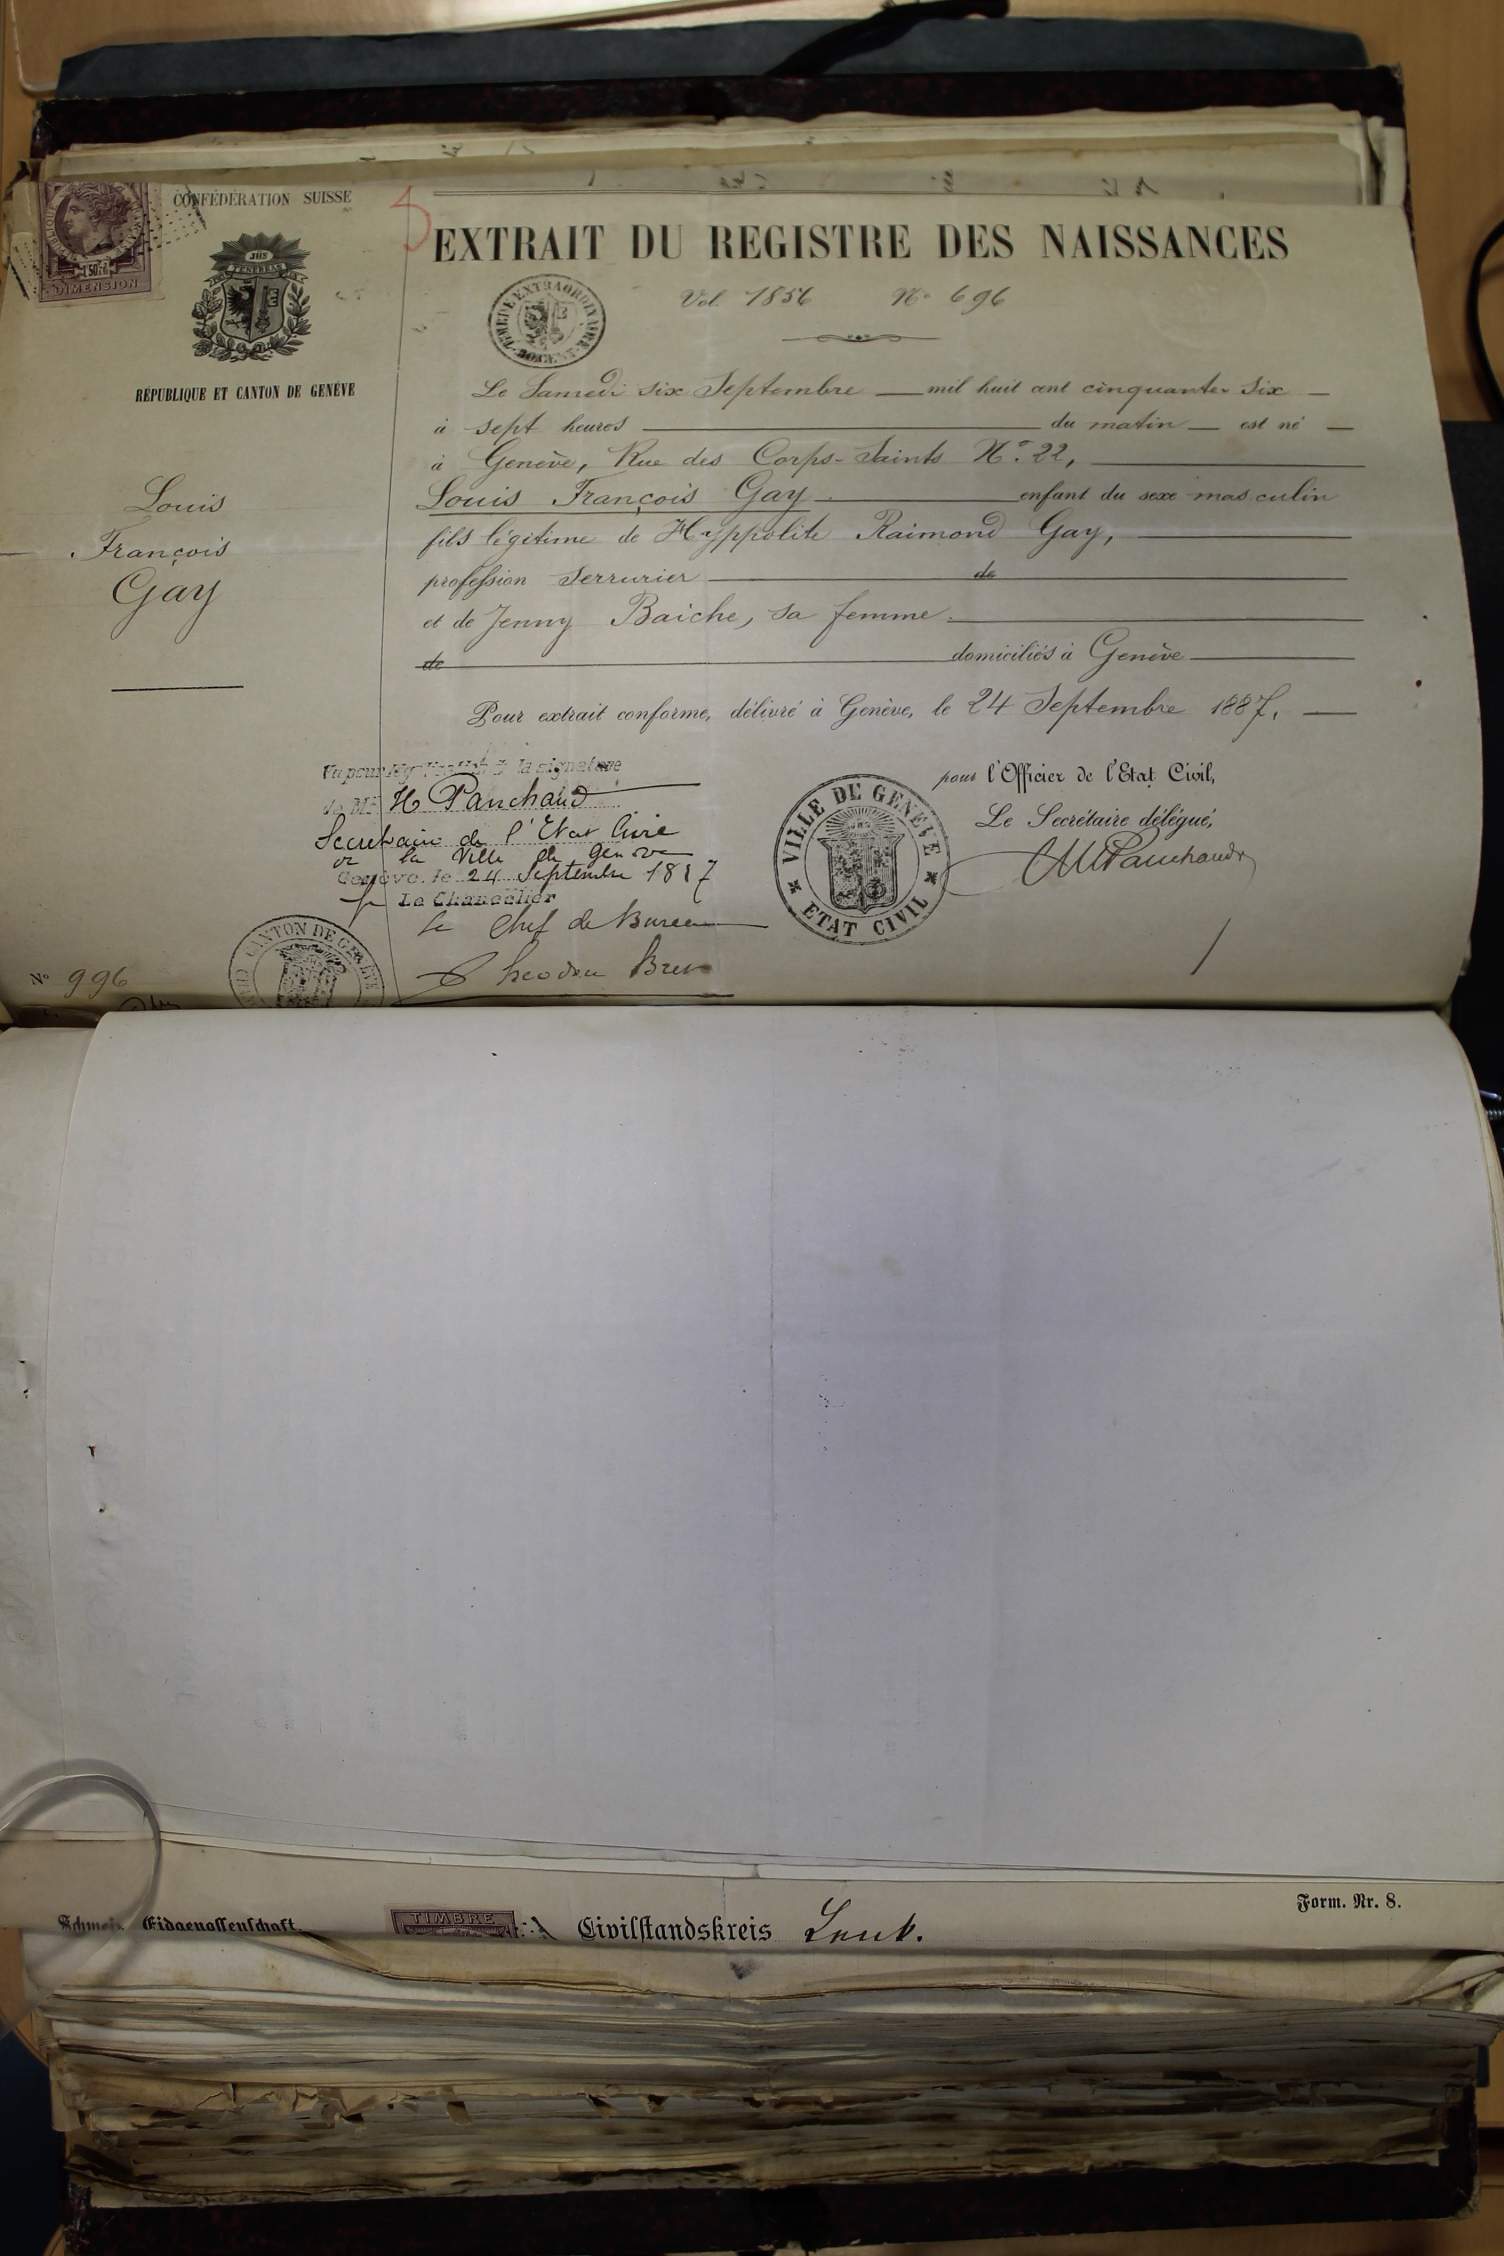 CONFÉDÉRATION SUISSE
1.50
DIMENSION
JHS
RÉPUBLIQUE ET CANTON DE GENÈVE
Louis
François
Gay
EXTRAIT DU REGISTRE DES NAISSANCES
Vol. 1856 No. 696
Le Samedi six Septembre mil huit cent cinquante-six
à sept heures du matin est né
à Genève, Rue des Corps-Saints No. 22,
Louis François Gay enfant du sexe masculin
fils légitime de Hyppolite Raimond Gay,
profession Serrurier de
et de Jenny Baiche, sa femme.
de domiciliés à Genève
Pour extrait conforme, délivré à Genève, le 24 Septembre 1887.
Vu pour la signature
de Mr H Panchaud
Secretaire de l'Etat Civil
de la Ville de Genève
Genève, le 24 Septembre 1887
Le Chancelier
Le Chef de Bureau
pour l'Officier de l'Etat Civil,
Le Secrétaire délégué,
Panchaud
VILLE DE GENÈVE
ETAT CIVIL
CANTON DE GENÈVE
No 996
Schweiz. Eidgenossenschaft.
TIMBRE
Civilstandskreis Leuk.
Form. Nr. 8.